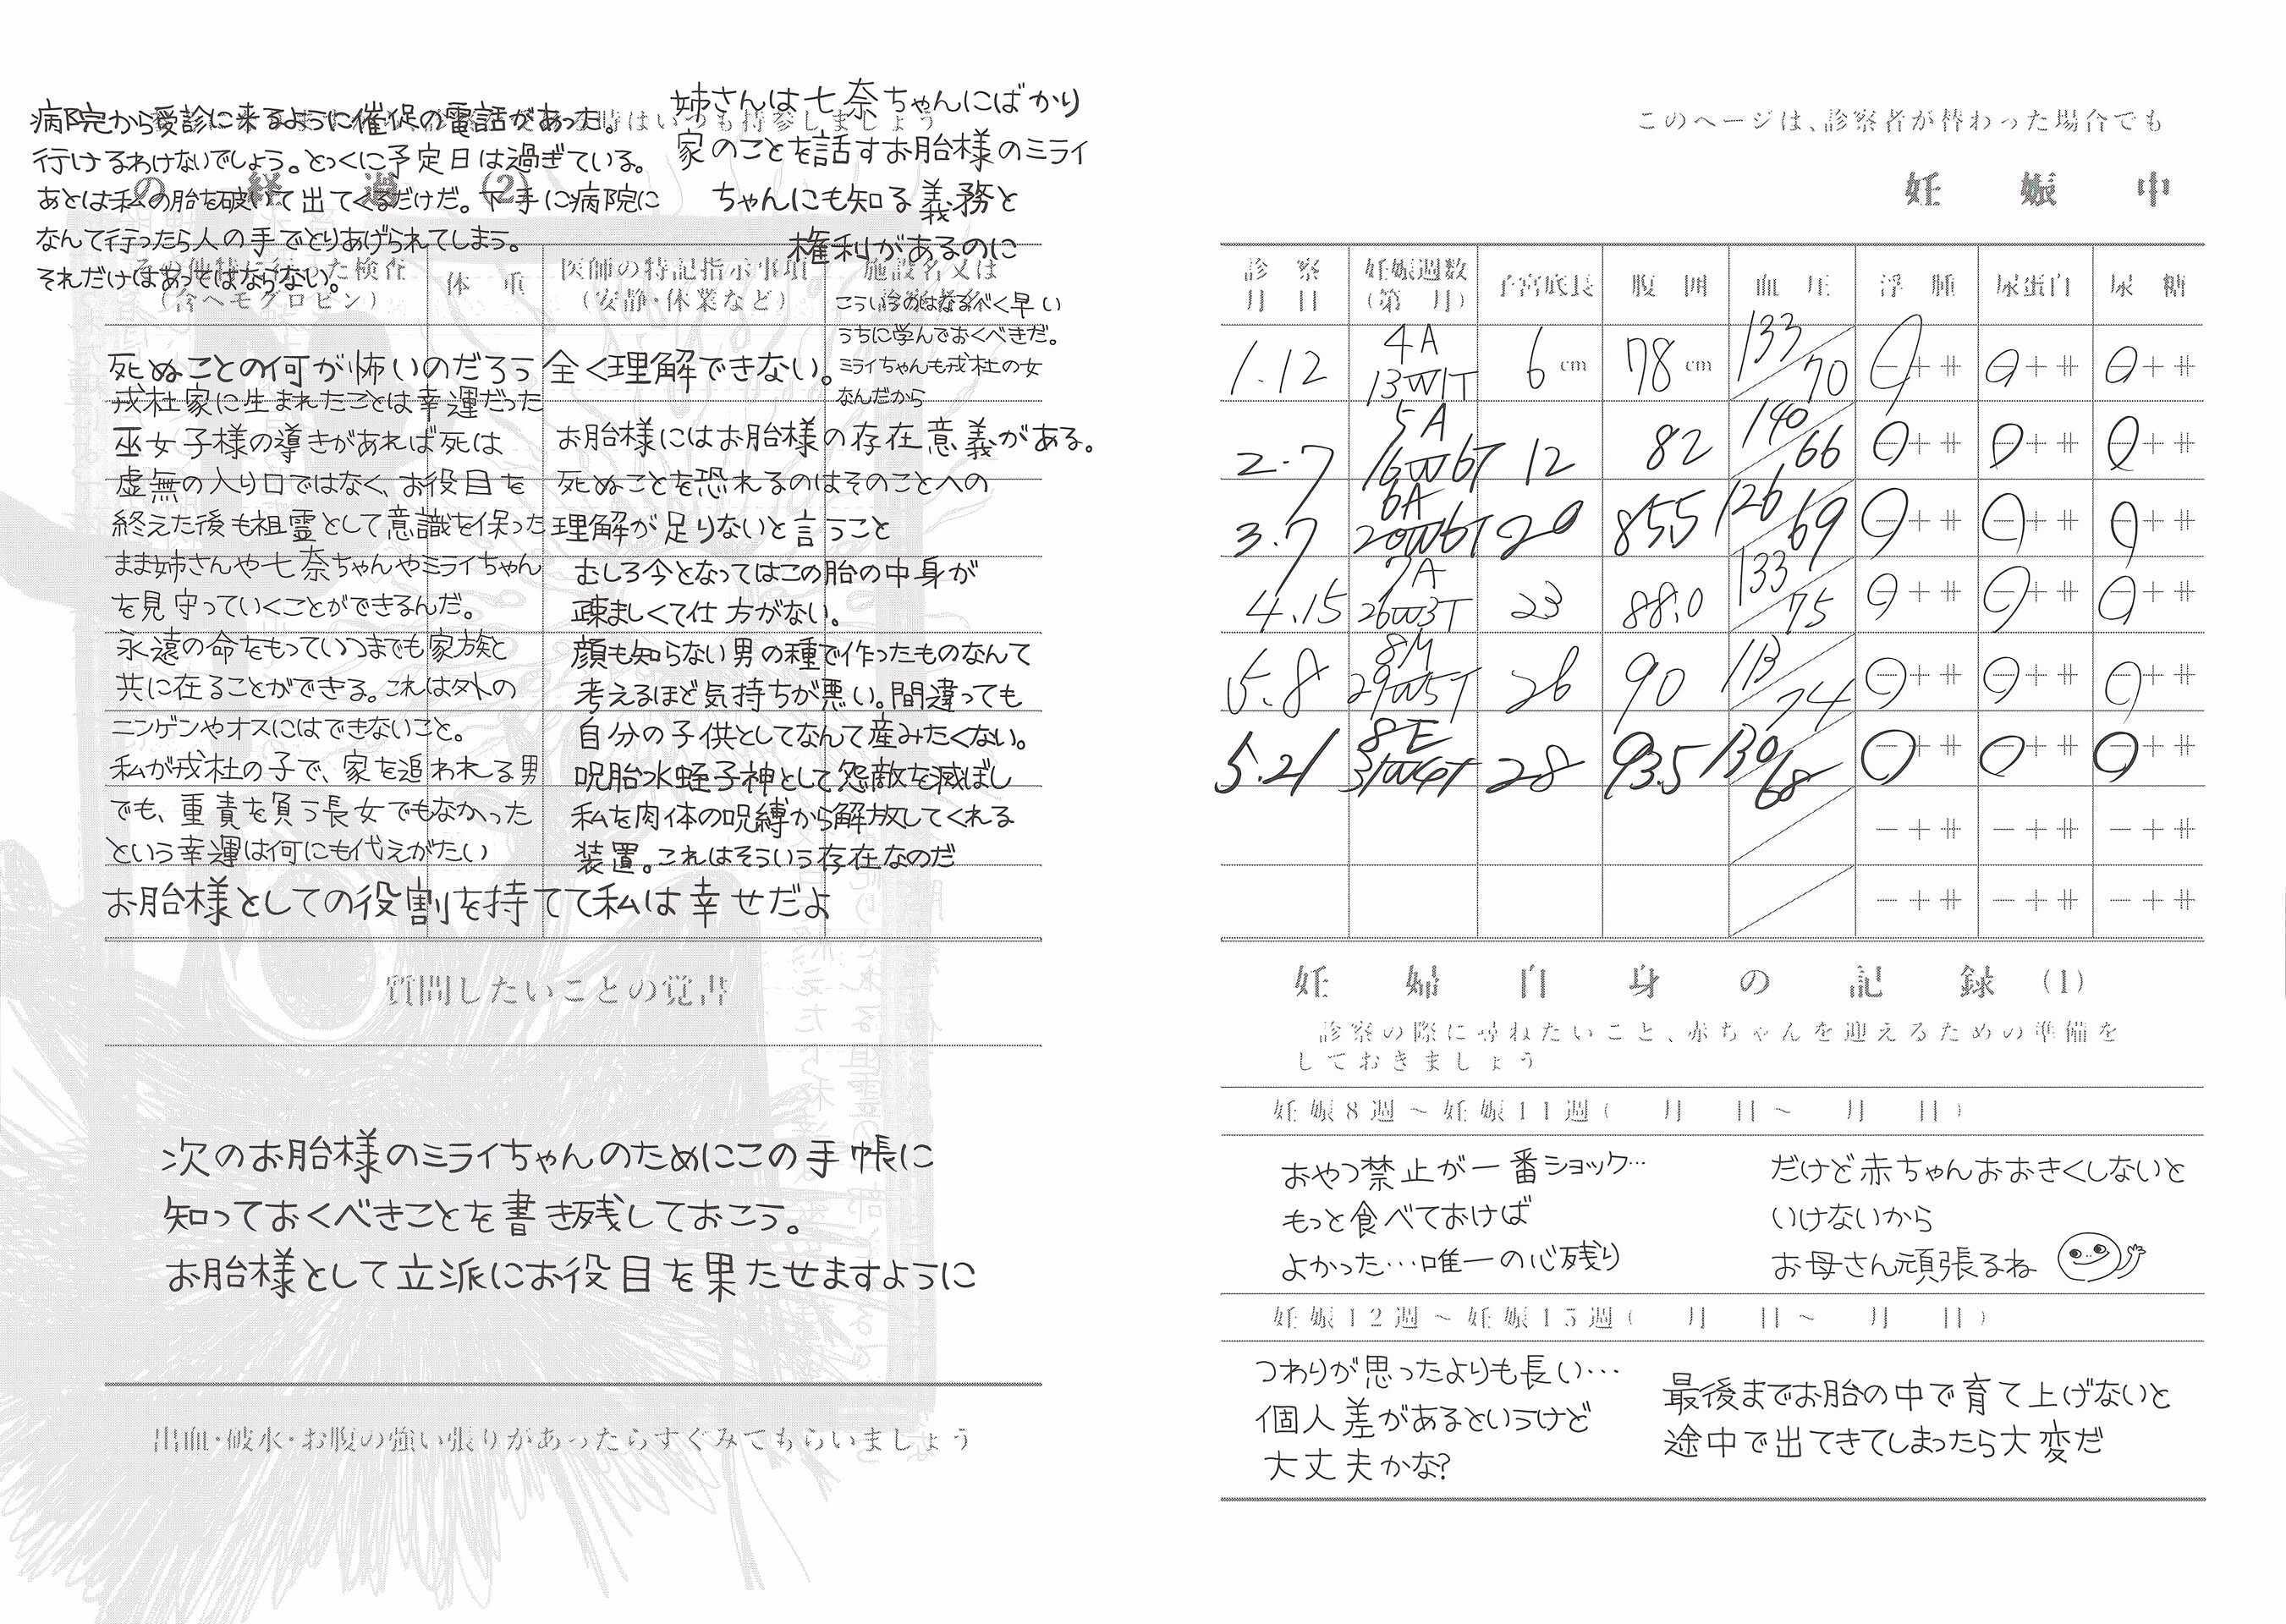 病院から受診に来るように催促の電話があった。
行けるわけないでしょう。とっくに予定日は過ぎている。
あとは私の胎を破いて出てくるだけだ。下手に病院に
なんて行ったら人の手でとりあげられてしまう。
それだけはあってはならない。
姉さんは七奈ちゃんにばかり
家のことを話すお胎様のミライ
ちゃんにも知る義務と
権利があるのに
時はいつも持参しましょう
の経過(2)
その他特に行った検査
(含ヘモグロビン)
体重
医師の特記指示事項
(安静・休業など)
施設名又は
こういうのはなるべく早い
うちに学んでおくべきだ。
ミライちゃんも戎杜の女
なんだから
死ぬことの何が怖いのだろう全く理解できない。
戎杜家に生まれたことは幸運だった
巫女子様の導きがあれば死は
虚無の入り口ではなく、お役目を
終えた後も祖霊として意識を保った
まま姉さんや七奈ちゃんやミライちゃん
を見守っていくことができるんだ。
永遠の命をもっていつまでも家族と
共に在ることができる。これは外の
ニンゲンやオスにはできないこと。
私が戎杜の子で、家を追われる男
でも、重責を負う長女でもなかった
という幸運は何にも代えがたい
お胎様としての役割を持てて私は幸せだよ
お胎様にはお胎様の存在意義がある。
死ぬことを恐れるのはそのことへの
理解が足りないと言うこと
むしろ今となってはこの胎の中身が
疎ましくて仕方がない。
顔も知らない男の種で作ったものなんて
考えるほど気持ちが悪い。間違っても
自分の子供としてなんて産みたくない。
呪胎水蛭子神として怨敵を滅ぼし
私を肉体の呪縛から解放してくれる
装置。これはそういう存在なのだ
質問したいことの覚書
次のお胎様のミライちゃんのためにこの手帳に
知っておくべきことを書き残しておこう。
お胎様として立派にお役目を果たせますように
出血・破水・お腹の強い張りがあったらすぐみてもらいましょう
このページは、診察者が替わった場合でも
妊娠中
診察月日 妊娠週数(第 月) 子宮底長 腹囲 血圧 浮腫 尿蛋白 尿糖
1.12 4A 13W1T 6cm 78cm 133/70 − + ⧺ − + ⧺ − + ⧺
2.7 5A 16W6T 12 82 140/66 − + ⧺ − + ⧺ − + ⧺
3.7 6A 20W6T 20 855 126/69 − + ⧺ − + ⧺ − + ⧺
4.15 7A 26W3T 23 88.0 133/75 − + ⧺ − + ⧺ − + ⧺
5.8 8M 29W5T 26 90 113/74 − + ⧺ − + ⧺ − + ⧺
5.21 8E 31W4T 28 93.5 130/68 − + ⧺ − + ⧺ − + ⧺
− + ⧺ − + ⧺ − + ⧺
− + ⧺ − + ⧺ − + ⧺
妊婦自身の記録(1)
診察の際に尋ねたいこと、赤ちゃんを迎えるための準備を
しておきましょう
妊娠8週~妊娠11週( 月 日~ 月 日)
おやつ禁止が一番ショック…
もっと食べておけば
よかった…唯一の心残り
だけど赤ちゃんおおきくしないと
いけないから
お母さん頑張るね
妊娠12週~妊娠15週( 月 日~ 月 日)
つわりが思ったよりも長い…
個人差があるというけど
大丈夫かな?
最後までお胎の中で育て上げないと
途中で出てきてしまったら大変だ